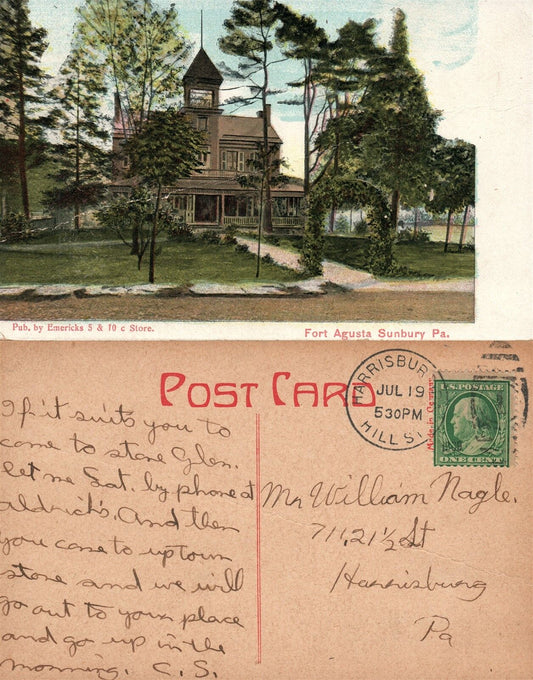 Pub. by Emericks 5 & 10 c Store.
Fort Agusta Sunbury Pa.
POST CARD
HARRISBURG
JUL 19
530PM
HILL ST
U.S. POSTAGE
ONE CENT
Made in Germany
If it suits you to
come to stone Glen.
let me Sat. by phone at
aldrich's. And then
you come to uptown
store and we will
go out to your place
and go up in the
morning. C.S.
Mr William Nagle.
711, 21½ St
Harrisburg
Pa